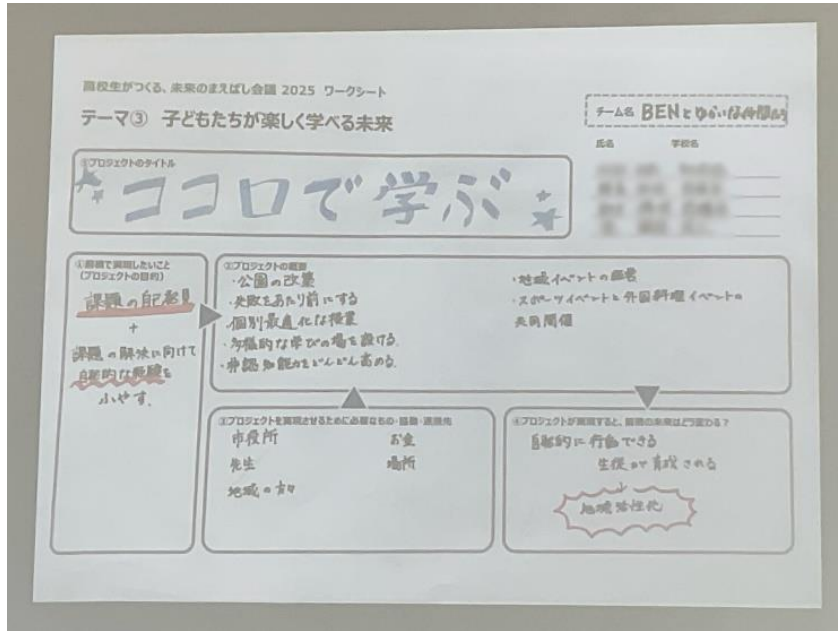 高校生がつくる、未来のまえばし会議 2025 ワークシート
テーマ③ 子どもたちが楽しく学べる未来
チーム名 BENとゆかいな仲間たち
氏名 学校名
プロジェクトのタイトル
ココロで学ぶ
①前橋で実現したいこと
(プロジェクトの目的)
課題の
+
課題の解決に向けて
自発的な経験を
ふやす.
②プロジェクトの概要
・公園の改築
・失敗をあたり前にする
・個別最適化な授業
・多様的な学びの場を設ける.
・非認知能力をどんどん高める.
・地域イベントの経営
・スポーツイベントと外国料理イベントの
共同開催
③プロジェクトを実現させるために必要なもの・協働・連携先
市役所 お金
先生 場所
地域の方々
④プロジェクトが実現すると、前橋の未来はどう変わる?
自発的に行動できる
生徒が育成される
↓
地域活性化